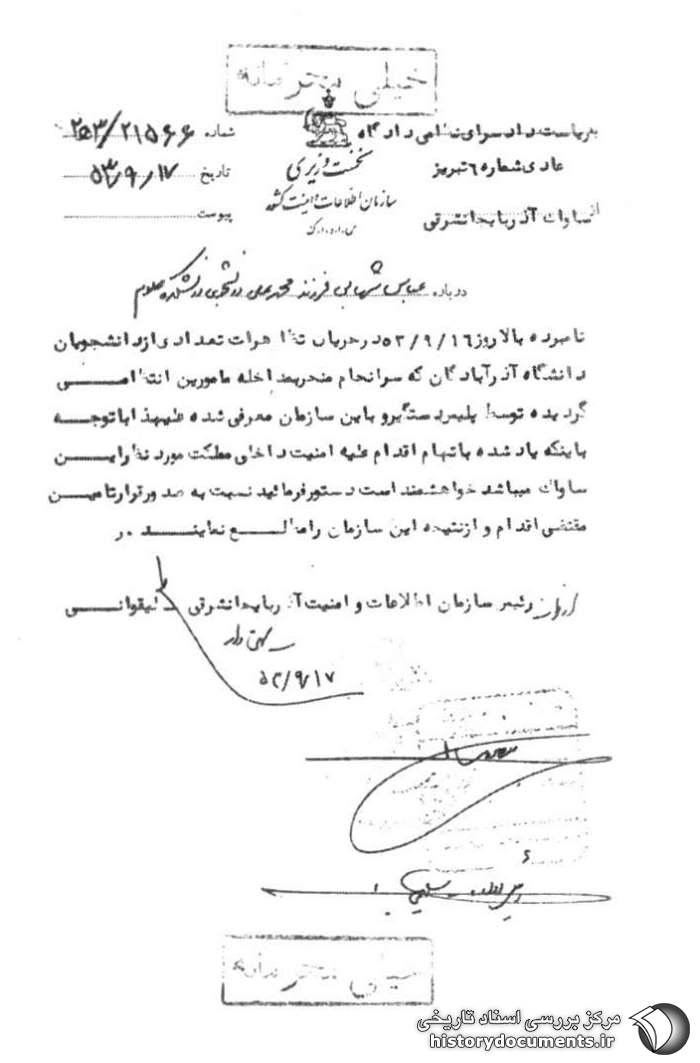 خیلی محرمانه
بریاست دادسرای نظامی دادگاه
عادی شماره ٦ تبریز
از ساواک آذربایجانشرقی
نخست وزیری
سازمان اطلاعات و امنیت کشور
س.ا.و.ا.ک
شماره ٢٥٣/٢١٥٦٦
تاریخ ٥٣/٩/١٧
پیوست
درباره عباس شهابی فرزند محمدعلی دانشجوی دانشکده علوم
نامبرده بالا روز ٥٣/٩/١٦ در جریان تظاهرات تعدادی از دانشجویان
دانشگاه آذرآبادگان که سرانجام منجر بمداخله مامورین انتظامی
گردیده توسط پلیس دستگیر و باین سازمان معرفی شده علیهذا با توجه
باینکه یاد شده باتهام اقدام علیه امنیت داخلی مملکت مورد نظر این
ساواک میباشد خواهشمند است دستور فرمائید نسبت به صدور قرار تامین
مقتضی اقدام و از نتیجه این سازمان را مطلع نمایند. ر
رئیس سازمان اطلاعات و امنیت آذربایجانشرقی لیقوانی
٥٣/٩/١٧
خیلی محرمانه
مرکز بررسی اسناد تاریخی
historydocuments.ir